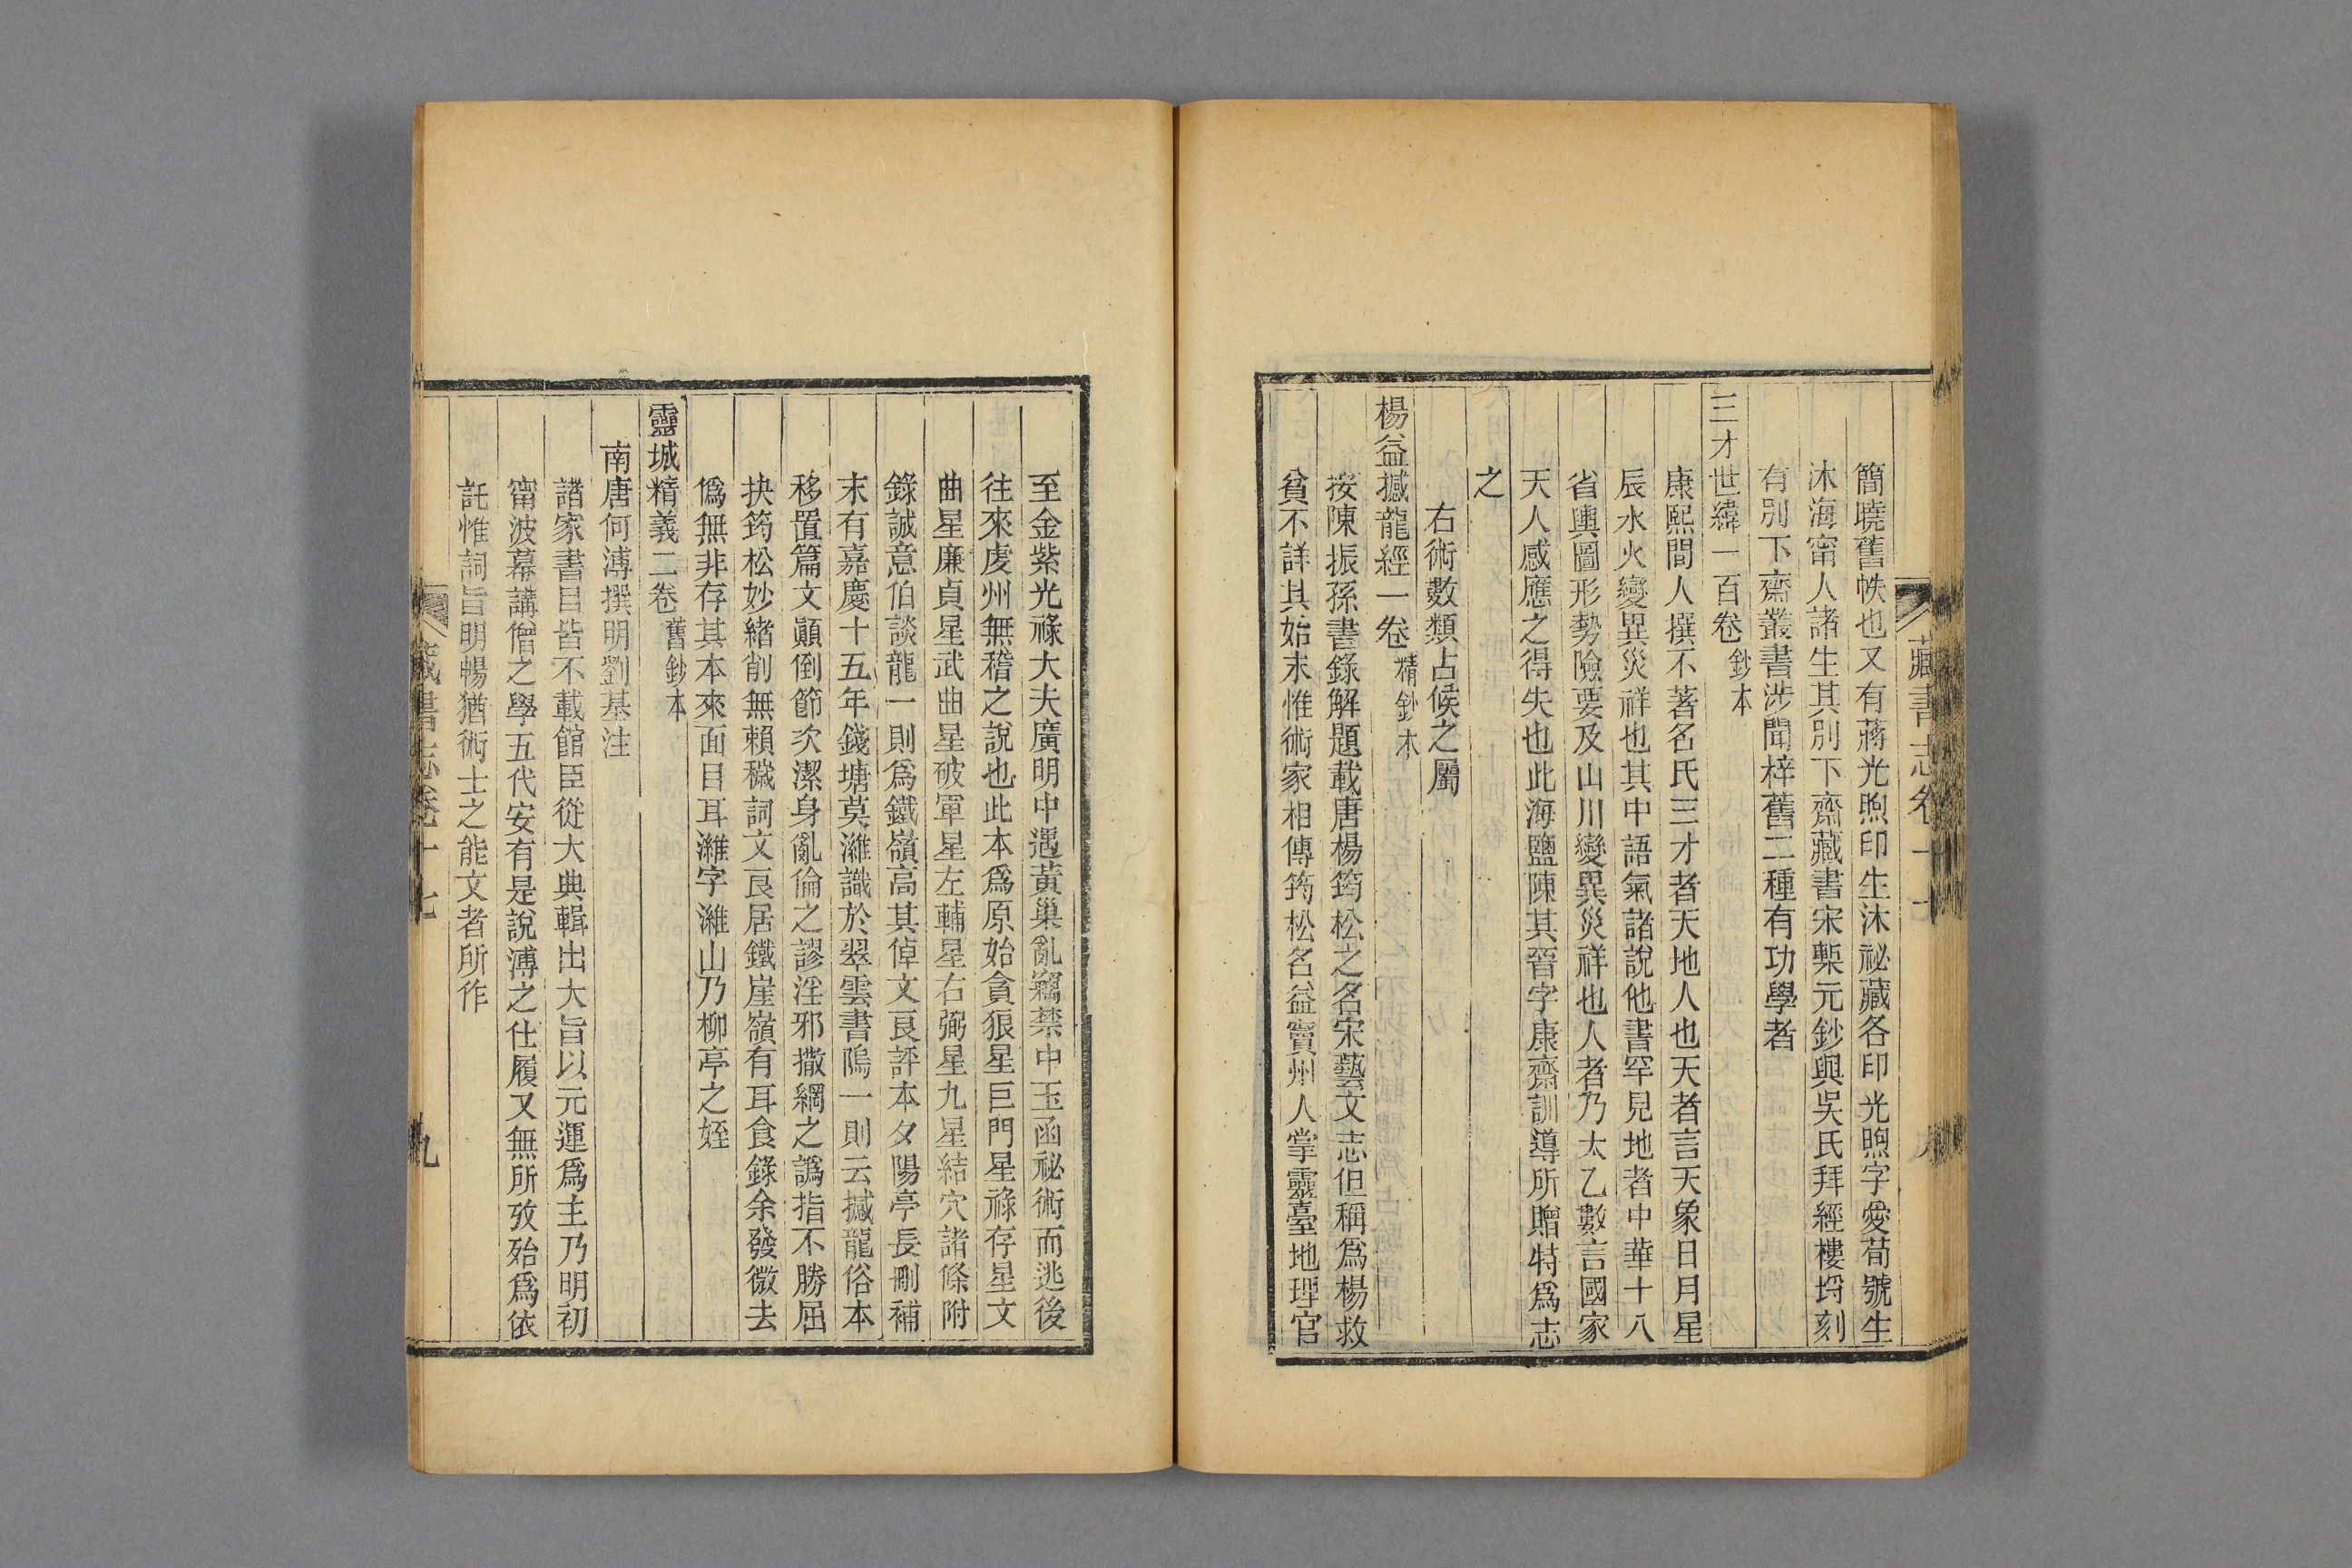 藏書志卷十七
簡曉舊帙也又有蔣光煦印生沐祕藏各印光煦字愛荀號生
沐海甯人諸生其別下齋藏書宋槧元鈔與吳氏拜經樓埒刻
有別下齋叢書涉聞梓舊二種有功學者
三才世緯一百卷 鈔本
康熙間人撰不著名氏三才者天地人也天者言天象日月星
辰水火變異災祥也其中語氣諸說他書罕見地者中華十八
省輿圖形勢險要及山川變異災祥也人者乃太乙數言國家
天人感應之得失也此海鹽陳其晉字康齋訓導所贈特爲志
之
右術數類占候之屬
楊益撼龍經一卷 精鈔本
按陳振孫書錄解題載唐楊筠松之名宋藝文志但稱爲楊救
貧不詳其始末惟術家相傳筠松名益竇州人掌靈臺地理官
至金紫光祿大夫廣明中遇黃巢亂竊禁中玉函祕術而逃後
往來虔州無稽之說也此本爲原始貪狼星巨門星祿存星文
曲星廉貞星武曲星破軍星左輔星右弼星九星結穴諸條附
錄誠意伯談龍一則爲鐵嶺高其倬文良評本夕陽亭長刪補
末有嘉慶十五年錢塘莫濰識於翠雲書隖一則云撼龍俗本
移置篇文顚倒節次潔身亂倫之謬淫邪撒網之譌指不勝屈
抉筠松妙緒削無賴穢詞文良居鐵崖嶺有耳食錄余發微去
僞無非存其本來面目耳濰字濰山乃柳亭之姪
靈城精義二卷 舊鈔本
南唐何溥撰明劉基注
諸家書目皆不載館臣從大典輯出大旨以元運爲主乃明初
甯波幕講僧之學五代安有是說溥之仕履又無所攷殆爲依
託惟詞旨明暢猶術士之能文者所作
藏書志卷十七
九